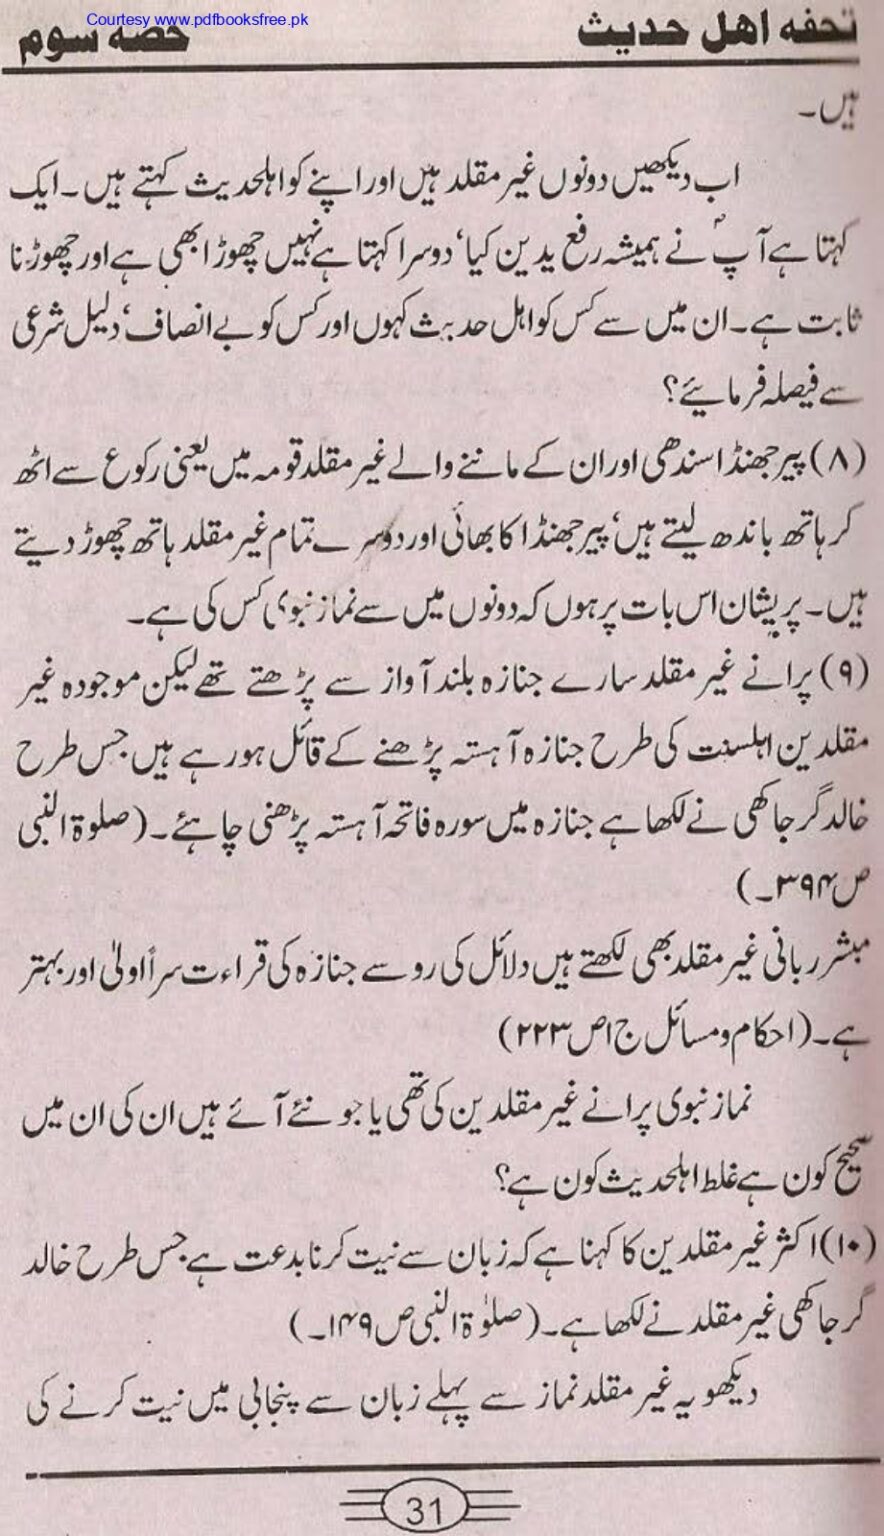 Courtesy www.pdfbooksfree.pk
تحفہ اھل حدیث
حصہ سوم
ہیں۔
اب دیکھیں دونوں غیر مقلد ہیں اور اپنے کو اہلحدیث کہتے ہیں۔ ایک
کہتا ہے آپؐ نے ہمیشہ رفع یدین کیا، دوسرا کہتا ہے نہیں چھوڑا بھی ہے اور چھوڑنا
ثابت ہے۔ ان میں سے کس کو اہل حدیث کہوں اور کس کو بے انصاف، دلیل شرعی
سے فیصلہ فرمائیے؟
(۸) پیر جھنڈا سندھی اور ان کے ماننے والے غیر مقلد قومہ میں یعنی رکوع سے اٹھ
کر ہاتھ باندھ لیتے ہیں، پیر جھنڈا کا بھائی اور دوسرے تمام غیر مقلد ہاتھ چھوڑ دیتے
ہیں۔ پریشان اس بات پر ہوں کہ دونوں میں سے نماز نبوی کس کی ہے۔
(۹) پرانے غیر مقلد سارے جنازہ بلند آواز سے پڑھتے تھے لیکن موجودہ غیر
مقلدین اہلسنت کی طرح جنازہ آہستہ پڑھنے کے قائل ہو رہے ہیں جس طرح
خالد گرجاکھی نے لکھا ہے جنازہ میں سورہ فاتحہ آہستہ پڑھنی چاہئے۔ (صلوۃ النبی
ص۳۹۴۔)
مبشر ربانی غیر مقلد بھی لکھتے ہیں دلائل کی رو سے جنازہ کی قراءت سراً اولیٰ اور بہتر
ہے۔ (احکام و مسائل ج۱ص۲۲۳)
نماز نبوی پرانے غیر مقلدین کی تھی یا جو نئے آئے ہیں ان کی ان میں
صحیح کون ہے غلط اہلحدیث کون ہے؟
(۱۰) اکثر غیر مقلدین کا کہنا ہے کہ زبان سے نیت کرنا بدعت ہے جس طرح خالد
گرجاکھی غیر مقلد نے لکھا ہے۔ (صلوٰۃ النبی ص۱۴۹۔)
دیکھو یہ غیر مقلد نماز سے پہلے زبان سے پنجابی میں نیت کرنے کی
31